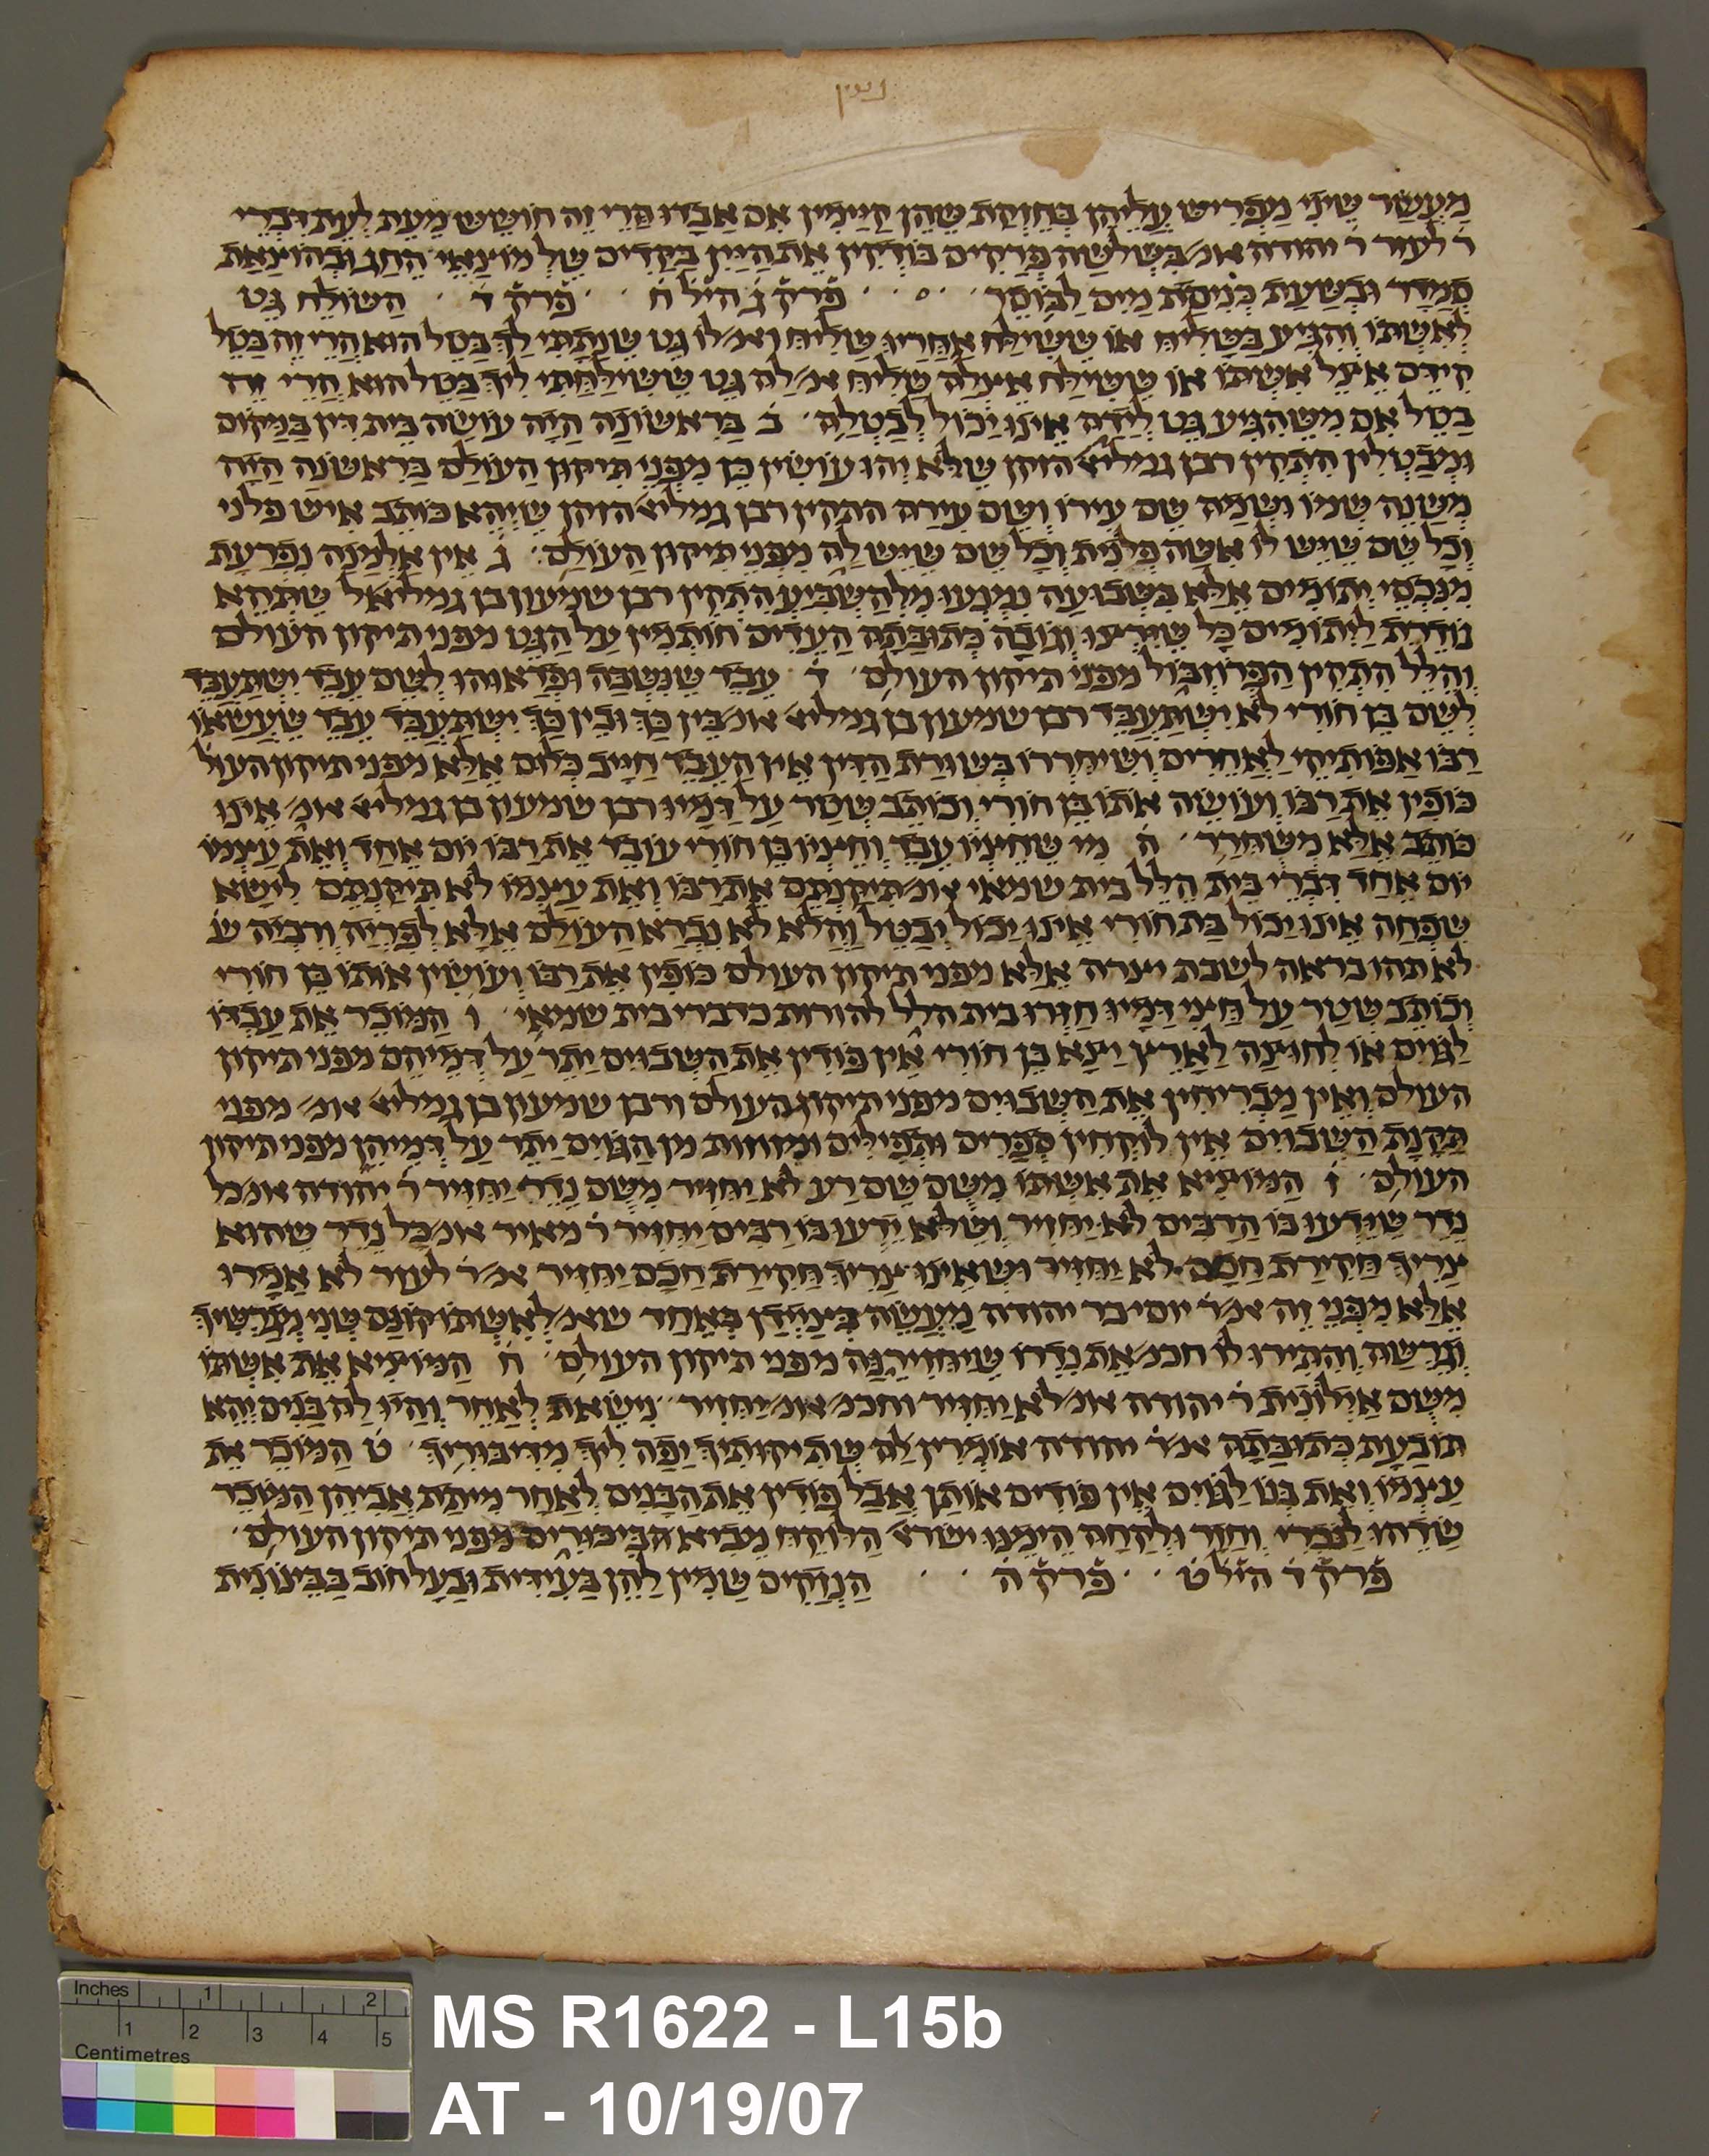 גטין
מַעֲשֵׂר שֵׁינִי מַפְרִישׁ עֲלֵיהֶן בְּחֶזְקַת שֶׁהֵן קַיָּימִין אִם אָבָדוּ הֲרֵי זֶה חוֹשֵׁשׁ מֵעֵת לְעֵת דִּבְרֵי
ר׳ לעזר ר׳ יהודה אומ׳ בִּשְׁלֹשָׁה פְּרָקִים בּוֹדְקִין אֶת הַיַּיִן בַּקָּדִים שֶׁל מוֹצָאֵי הֶחַג וּבְהוֹצָאַת
סְמָדַר וּבִשְׁעַת כְּנִיסַת מַיִם לַבּוֹסֶר פרק ג׳ היל׳ ח׳ פרק ד׳ הַשּׁוֹלֵחַ גֵּט
לְאִשְׁתּוֹ וְהִגִּיעַ בַּשָּׁלִיחַ אוֹ שֶׁשִּׁילַּח אַחֲרָיו שָׁלִיחַ ואמ׳ לוֹ גֵּט שֶׁנָּתַתִּי לָךְ בָּטֵל הוּא הֲרֵי זֶה בָּטֵל
קִידֵּם אֵצֶל אִשְׁתּוֹ אוֹ שֶׁשִּׁילַּח אֶצְלָהּ שָׁלִיחַ אמ׳ לָהּ גֵּט שֶׁשִּׁילַּחְתִּי לִיךְ בָּטֵל הוּא הֲרֵי זֶה
בָטֵל אִם מִשֶּׁהִגִּיעַ גֵּט לְיָדָהּ אֵינוּ יָכוֹל לְבַטְּלָהּ ב׳ בָּרִאשׁוֹנָה הָיָה עוֹשֶׂה בֵית דִּין בְּמָקוֹם
וּמְבַטְּלִין הִתְקִין רבן גמליאל הזקן שֶׁלֹּא יְהוּ עוֹשִׂין כֵּן מִפְּנֵי תִיקּוּן הָעוֹלָם בָּרִאשׁוֹנָה הָיָה
מְשַׁנֶּה שְׁמוֹ וּשְׁמָהּ שֵׁם עִירוֹ וְשֵׁם עִירָהּ התקין רבן גמליאל הזקן שֶׁיְּהֵא כּוֹתֵב אִישׁ פְּלֹנִי
וְכָל שֵׁם שֶׁיֵּשׁ לוֹ אִשָּׁה פְּלֹנִית וְכָל שֵׁם שֶׁיֵּשׁ לָהּ מִפְּנֵי תִיקּוּן הָעוֹלָם ג׳ אֵין אַלְמָנָה נִפְרַעַת
מִנִּכְסֵי יְתוֹמִים אֶלָּא בִּשְׁבוּעָה נִמְנְעוּ מִלְּהַשְׁבִּיעַ הִתְקִין רבן שמעון בן גמליאל שֶׁתְּהֵא
נוֹדֶרֶת לַיְתוֹמִים כָּל שֶׁיִּרְצוּ וְגוֹבָה כְּתוּבָּתָהּ הָעֵדִים חוֹתְמִין עַל הַגֵּט מפני תיקון העולם
וְהִלֵּל הִתְקִין הַפְּרוֹזְבּוֹל מפני תיקון העולם ד׳ עֶבֶד שֶׁנִּשְׁבָּה וּפְדָאוּהוּ לְשֵׁם עֶבֶד יִשְׁתַּעְבֵּד
לְשֵׁם בֶּן חוֹרִי לֹא יִשְׁתַּעְבֵּד רבן שמעון בן גמליאל אומ׳ בֵּין כָּךְ וּבֵין כָּךְ יִשְׁתַּעְבֵּד עֶבֶד שֶׁעֲשָׂאוֹ
רַבּוֹ אַפּוֹתֵיקֵי לַאֲחֵרִים וְשִׁיחְרְרוֹ בְּשׁוּרַת הַדִּין אֵין הָעֶבֶד חַיָּיב כְּלוּם אֶלָּא מפני תיקון העול׳
כּוֹפִין אֶת רַבּוֹ וְעוֹשֶׂה אוֹתוֹ בֶּן חוֹרִי וְכוֹתֵב שְׁטָר עַל דָּמָיו רבן שמעון בן גמליאל אומ׳ אֵינוּ
כּוֹתֵב אֶלָּא מְשַׁחְרֵר ה׳ מִי שֶׁחֶצְיוֹ עֶבֶד וְחֶצְיוֹ בֶּן חוֹרִי עוֹבֵד אֶת רַבּוֹ יוֹם אֶחָד וְאֶת עַצְמוֹ
יוֹם אֶחָד דִּבְרֵי בֵית הִלֵּל בית שמאי אומ׳ תִּיקַּנְתֶּם אֶת רַבּוֹ וְאֶת עַצְמוֹ לֹא תִיקַּנְתֶּם לִישָּׂא
שִׁפְחָה אֵינוּ יָכוֹל בַּת חוֹרִי אֵינוּ יָכוֹל יִבָּטֵל וַהֲלֹא לֹא נִבְרָא הָעוֹלָם אֶלָּא לִפְרִיָּה וְרִבְיָה שׁ׳
לא תהו בראה לשבת יצרה אֶלָּא מפני תיקון העולם כּוֹפִין אֶת רַבּוֹ וְעוֹשִׂין אוֹתוֹ בֶּן חוֹרִי
וְכוֹתֵב שְׁטָר עַל חֲצִי דָּמָיו חָזְרוּ בית הלל להורות כדברי בית שמאי ו׳ הַמּוֹכֵר אֶת עַבְדּוֹ
לַגּוֹיִם אוֹ לְחוּצָה לָאָרֶץ יָצָא בֶּן חוֹרִי אֵין פּוֹדִין אֶת הַשְּׁבוּיִם יָתֵר עַל דְּמֵיהֶם מפני תיקון
העולם וְאֵין מַבְרִיחִין אֶת הַשְּׁבוּיִם מפני תיקון העולם ורבן שמעון בן גמליאל אומ׳ מפני
תַּקָּנַת הַשְּׁבוּיִם אֵין לוֹקְחִין סְפָרִים וּתְפִילִּים וּמְזוּזוֹת מִן הַגּוֹיִם יָתֵר עַל דְּמֵיהֶן מפני תיקון
העולם ז׳ הַמּוֹצִיא אֶת אִשְׁתּוֹ מִשֵּׁם שֵׁם רַע לֹא יַחְזִיר מִשֵּׁם נֶדֶר יַחְזִיר ר׳ יהודה אומ׳ כל
נֶדֶר שֶׁיָּדְעוּ בוֹ הָרַבִּים לֹא יַחְזִיר וְשֶׁלֹּא יָדְעוּ בוֹ רַבִּים יַחְזִיר ר׳ מאיר אומ׳ כָּל נֶדֶר שֶׁהוּא
צָרִיךְ חֲקִירַת חָכָם לֹא יַחְזִיר וְשֶׁאֵינוּ צָרִיךְ חֲקִירַת חָכָם יַחְזִיר אמ׳ ר׳ לעזר לֹא אָמְרוּ
אֶלָּא מִפְּנֵי זֶה אמ׳ ר׳ יוסי בר יהודה מַעֲשֶׂה בְּצַיְידָּן בְּאֶחָד שאמ׳ לְאִשְׁתּוֹ קוֹנָם שֶׁנִּי מְגָרְשֵׁיךְ
וְגֵרְשָׁהּ וְהִתִּירוּ לוֹ חכמ׳ אֶת נִדְרוֹ שֶׁיַּחְזִירֶנָּה מפני תיקון העולם ח׳ הַמּוֹצִיא אֶת אִשְׁתּוֹ
מִשֵּׁם אַיְלוֹנִית ר׳ יהודה אומ׳ לֹא יַחְזִיר וחכמ׳ אומ׳ יַחְזִיר נִישֵּׂאת לְאַחֵר וְהָיוּ לָהּ בָּנִים וְהִיא
תּוֹבַעַת כְּתוּבָּתָהּ אמ׳ ר׳ יהודה אוֹמְרִין לָהּ שְׁתִיקוּתִיךְ יָפָה לִיךְ מִדִּיבּוּרִיךְ ט׳ הַמּוֹכֵר אֶת
עַצְמוֹ וְאֶת בְּנוֹ לַגּוֹיִם אֵין פּוֹדִים אוֹתָן אֲבָל פּוֹדִין אֶת הַבָּנִים לְאַחַר מִיתַת אֲבִיהֶן הַמּוֹכֵר
שָׂדֵהוּ לַנָּכְרִי וְחָזַר וּלְקָחָהּ הֵימֶנּוּ ישראל הַלּוֹקֵחַ מֵבִיא הַבִּיכּוּרִים מפני תיקון העולם
פרק ד׳ היל׳ ט׳ פרק ה׳ הַנְּזָקִים שָׁמִין לָהֶן בָּעִידִּית וּבַעַל חוֹב בַּבֵּינוֹנִית
MS R1622 - L15b
AT - 10/19/07
Inches 1 2
1 2 3 4 5
Centimetres